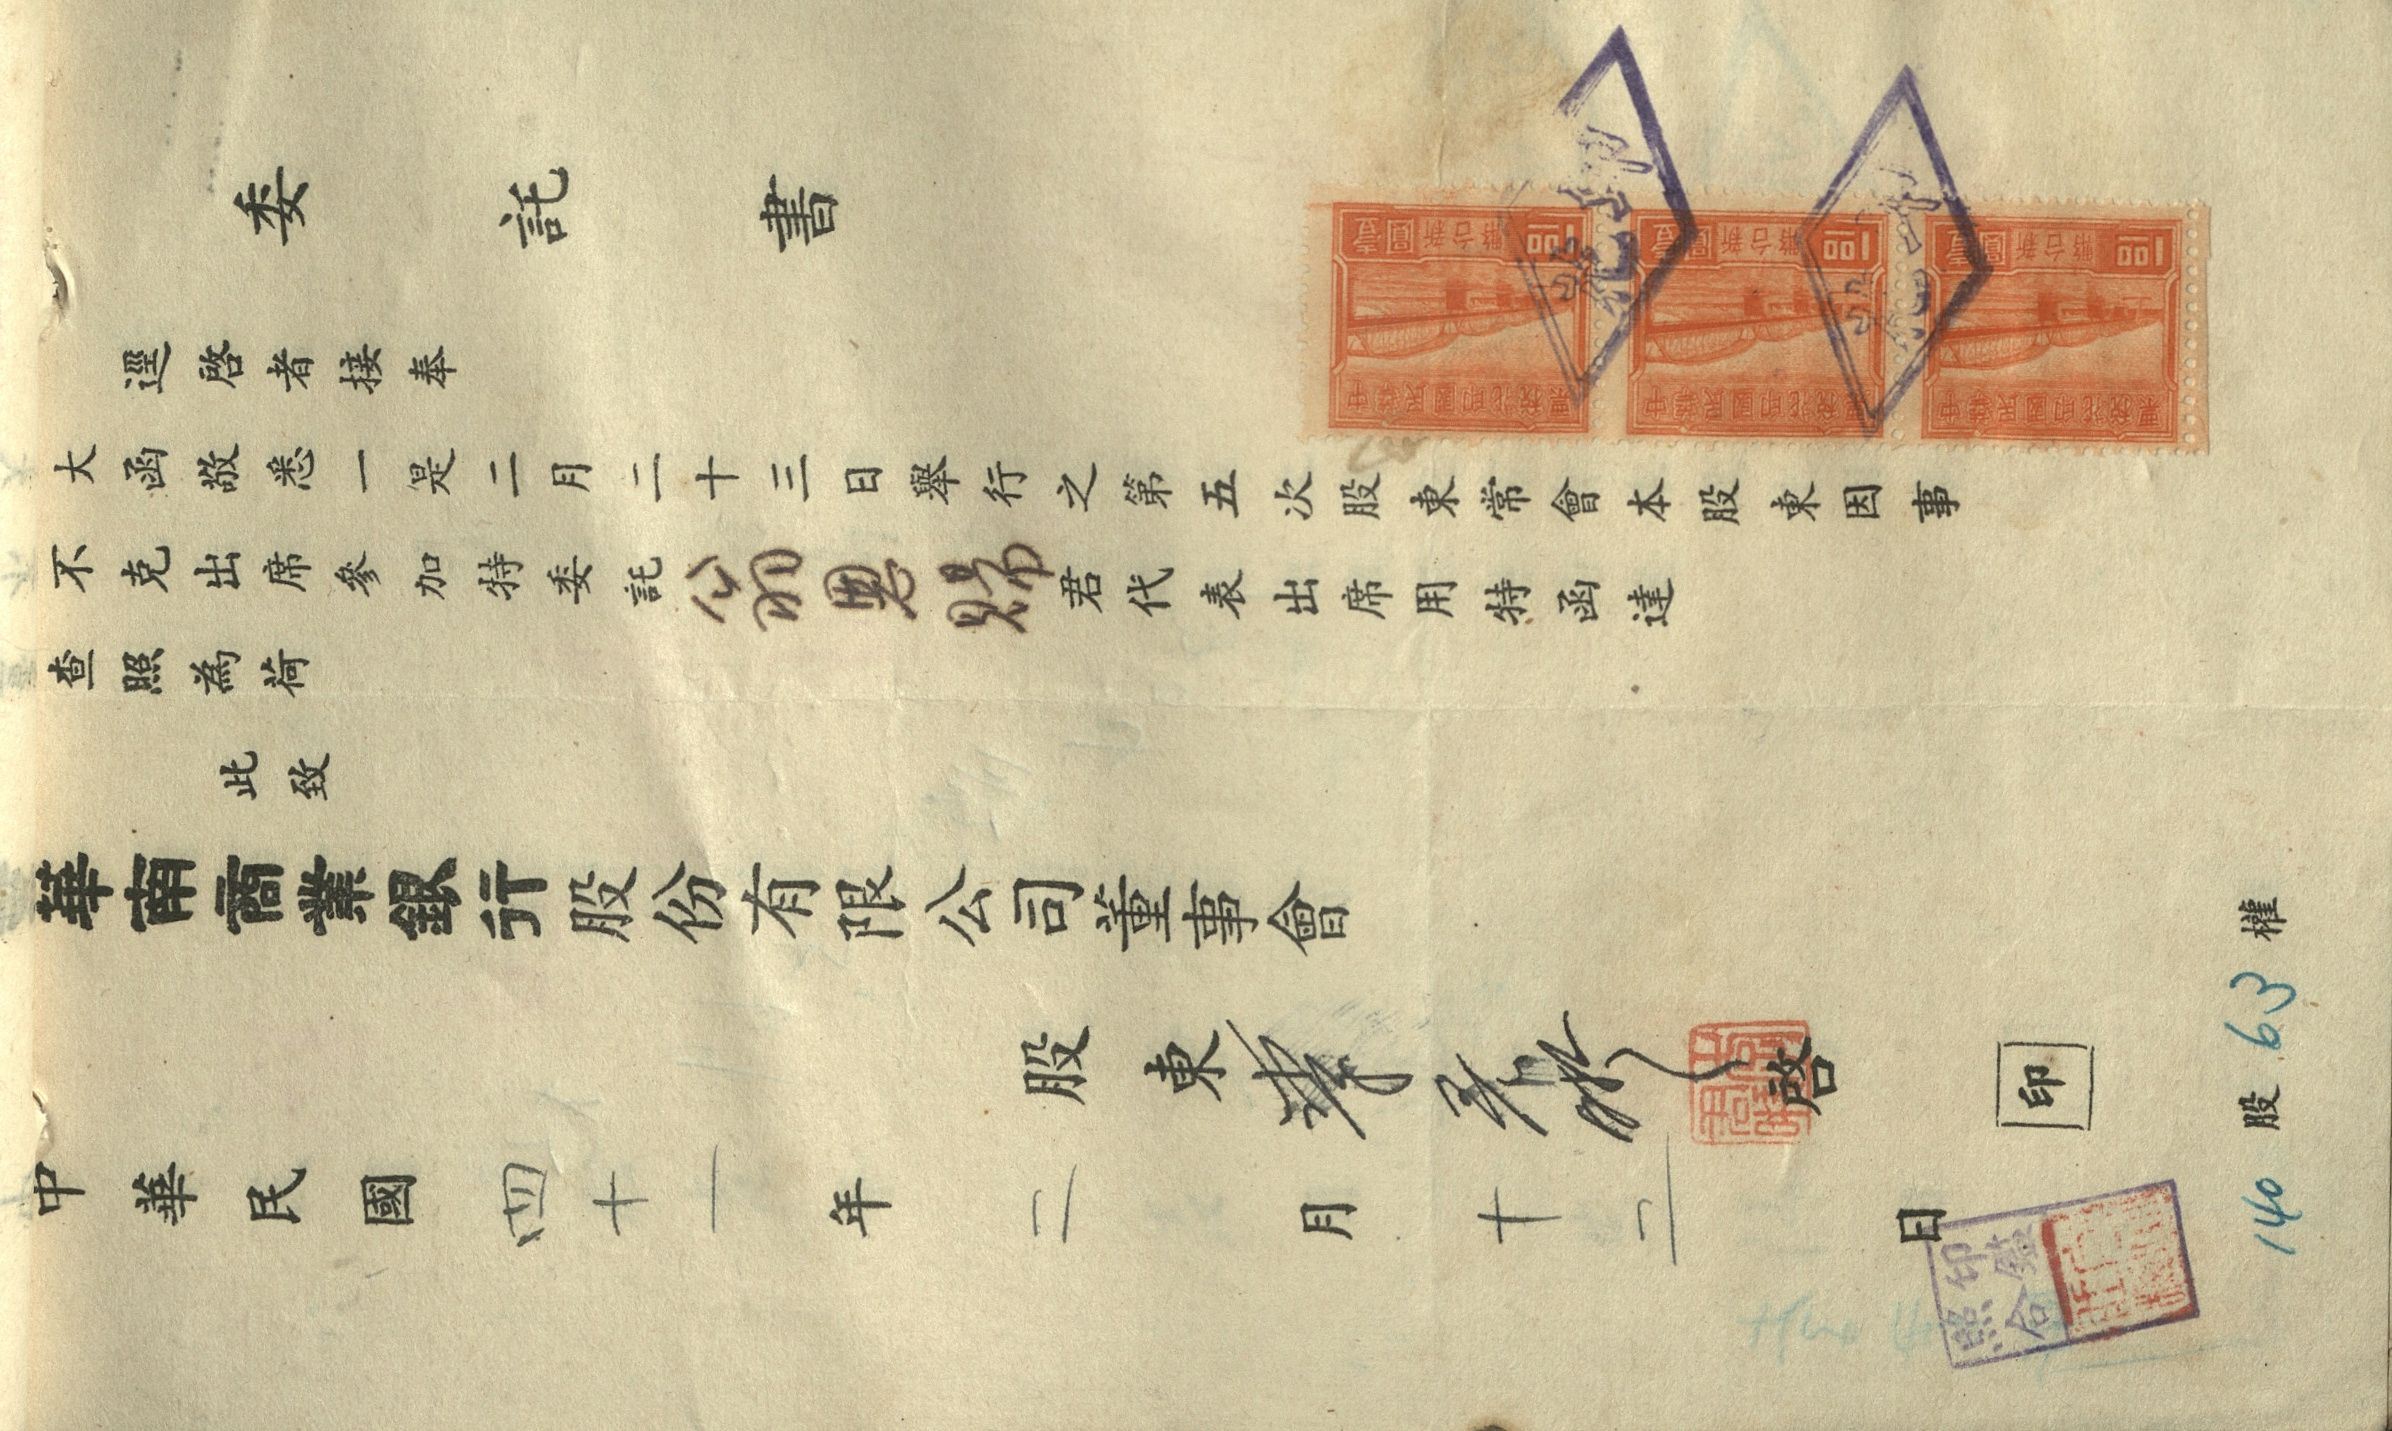 委託書
逕啓者接奉
大函敬悉一是二月二十三日舉行之第五次股東常會本股東因事
不克出席參加特委託翁恩賜君代表出席用特函達
查照為荷
此致
華南商業銀行股份有限公司董事會
股東 啓 印
中華民國四十一年二月十二日
140股 63權
中華民國印花稅票
新台幣壹圓
1.00
中華民國印花稅票
新台幣壹圓
1.00
中華民國印花稅票
新台幣壹圓
1.00
印鑑
照合